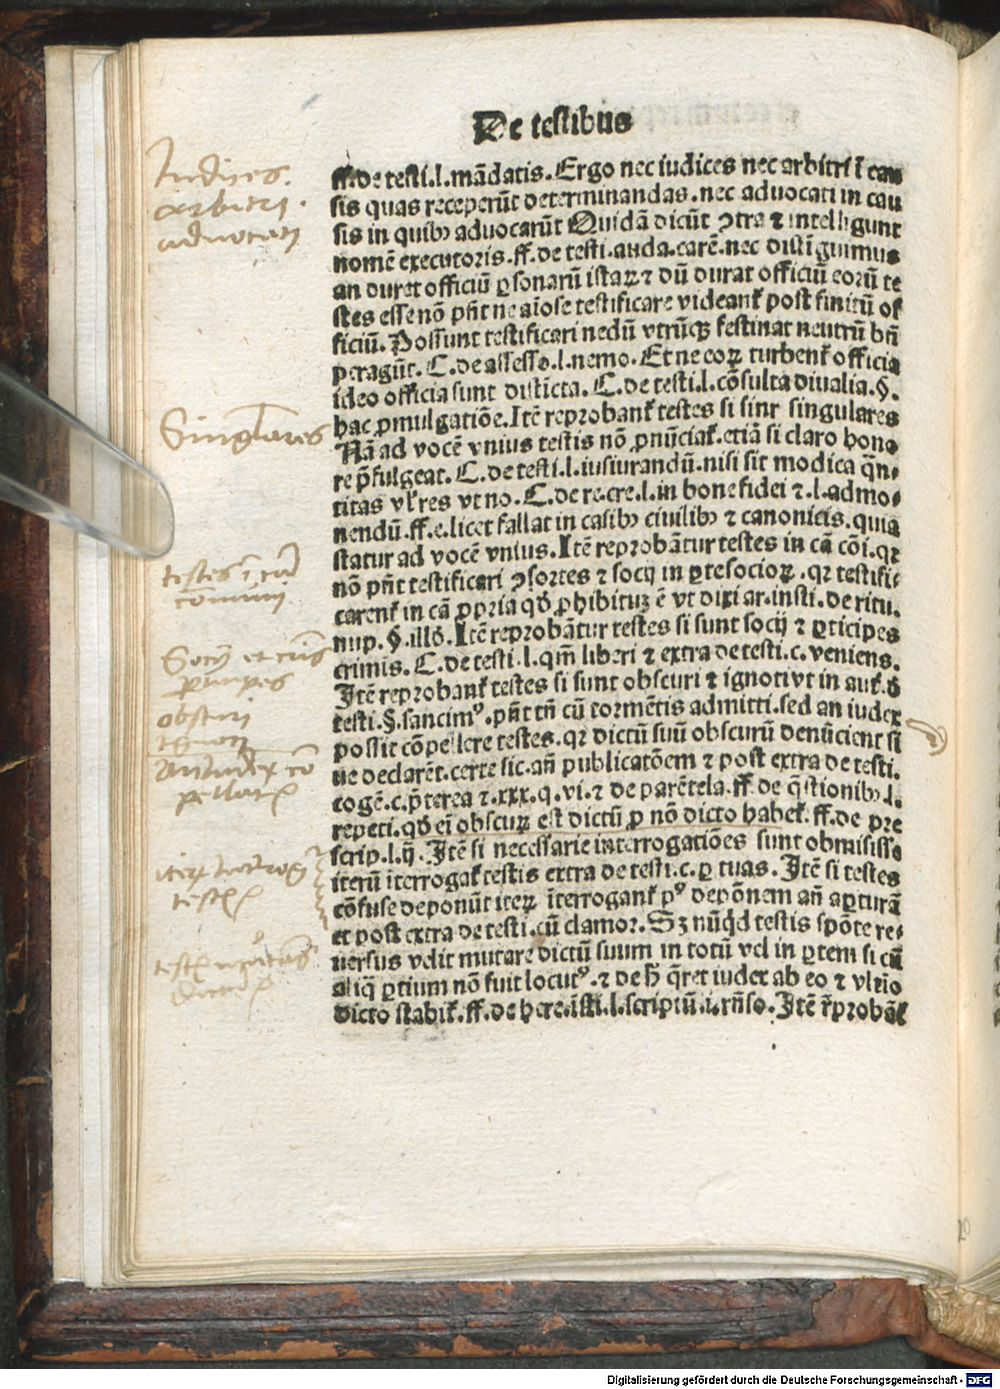 De testibus
ff.de testi.l.mādatis.Ergo nec iudices nec arbitri ī cau
sis quas receperūt determinandas.nec aduocati in cau
sis in quibꝫ aduocarūt Quidā dicūt ꝯtra ⁊ intelligunt
nomē executoris.ff.de testi.auda.carē.nec distīguimus
an duret officiū ꝑsonarū istaꝝ ⁊ dū durat officiū eorū te
stes esse nō pn̄t ne aīose testificare videant᷑ post finitū of
ficiū.Possunt testificari nedū vtrūqꝫ festinat neutrū bn̄
peragūt.C.de assesso.l.nemo.Et ne eoꝝ turbent᷑ officia
ideo officia sunt distīcta.C.de testi.l.cōsulta diualia.§.
hac ꝓmulgatiōe.Itē reprobant᷑ testes si sint singulares
Nā ad vocē vnius testis nō ꝓnūciat᷑.etiā si claro hono
re p̄fulgeat.C.de testi.l.iusiurandū.nisi sit modica q̄n
titas vl᷑ res vt no.C.de re.cre.l.in bone fidei ⁊.l.admo
nendū.ff.e.licet fallat in casibꝫ ciuilibꝫ ⁊ canonicis.quia
statur ad vocē vnius.Itē reprobātur testes in cā cōi.qꝛ
nō pn̄t testificari ꝯsortes ⁊ socij in ꝑte socioꝝ.qꝛ testifi
carent᷑ in cā ꝓpria qđ ꝓhibituꝫ ē vt dixi ar.insti.de ritu.
nup.§.illđ.Itē reprobātur testes si sunt socij ⁊ ꝑticipes
crimis.C.de testi.l.qm̄ liberi ⁊ extra de testi.c.veniens.
Itē reprobant᷑ testes si sunt obscuri ⁊ ignoti vt in aut᷑.đ
testi.§.sancimꝰ.pn̄t tn̄ cū tormētis admitti.sed an iudex
possit cōpellere testes.qꝛ dictū suū obscurū denūcient si
ue declarēt.certe sic.an̄ publicatōem ⁊ post extra de testi.
cogē.c.p̄terea ⁊.xxx.q.vi.⁊ de parētela.ff.de q̄stionibꝫ.l.
repeti.qđ eī obscuꝝ est dictū ꝑ nō dicto habet᷑.ff.de pre
scrip.l.ij.Itē si necessarie interrogatiōes sunt obmisisse
iterū īterrogat᷑ testis extra de testi.c.ꝑ tuas.Itē si testes
cōfuse deponūt iteꝝ īterrogant᷑ pꝰ depōnem an̄ aꝑturā
et post extra de testi.cū clamor.Sꝫ nūqđ testis spōte re
uersus velit mutare dictū suum in totū vel in ꝑtem si cū
aliq̄ ꝑtium nō fuit locutꝰ.⁊ de h̄ q̄ret iudex ab eo ⁊ vltīo
dicto stabit᷑.ff.de here.īsti.l.scriptū.i.rn̄so.Itē r̄probāt᷑
Iudices.
arbitri.
aduocati
Singulares
testes ī cā
communi
Socij et crīs
ꝑticipes
obscuri
ignoti
An iudex cō
pellat
testes
20
Digitalisierung gefördert durch die Deutsche Forschungsgemeinschaft - DFG